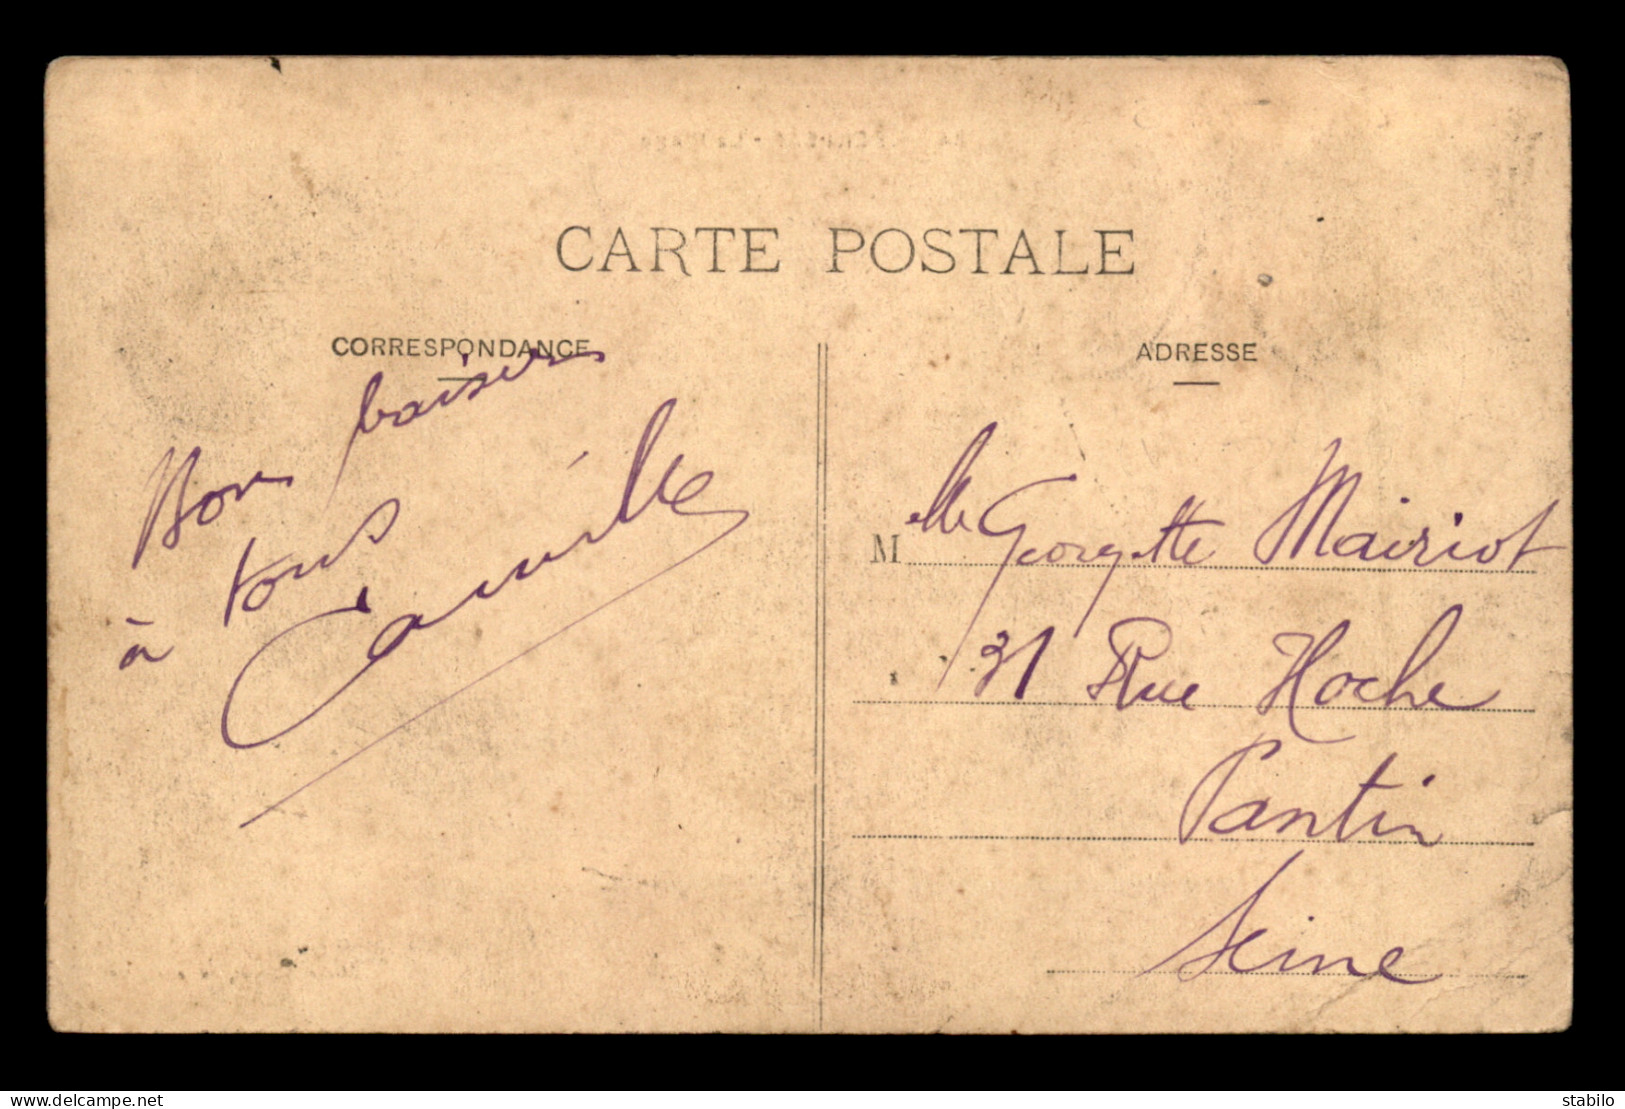 CARTE POSTALE
CORRESPONDANCE
Bons baisers
à tous
Camille
ADRESSE
Mlle Georgette Mairiot
31 Rue Hoche
Pantin
Seine
delcampe.net
stabilo